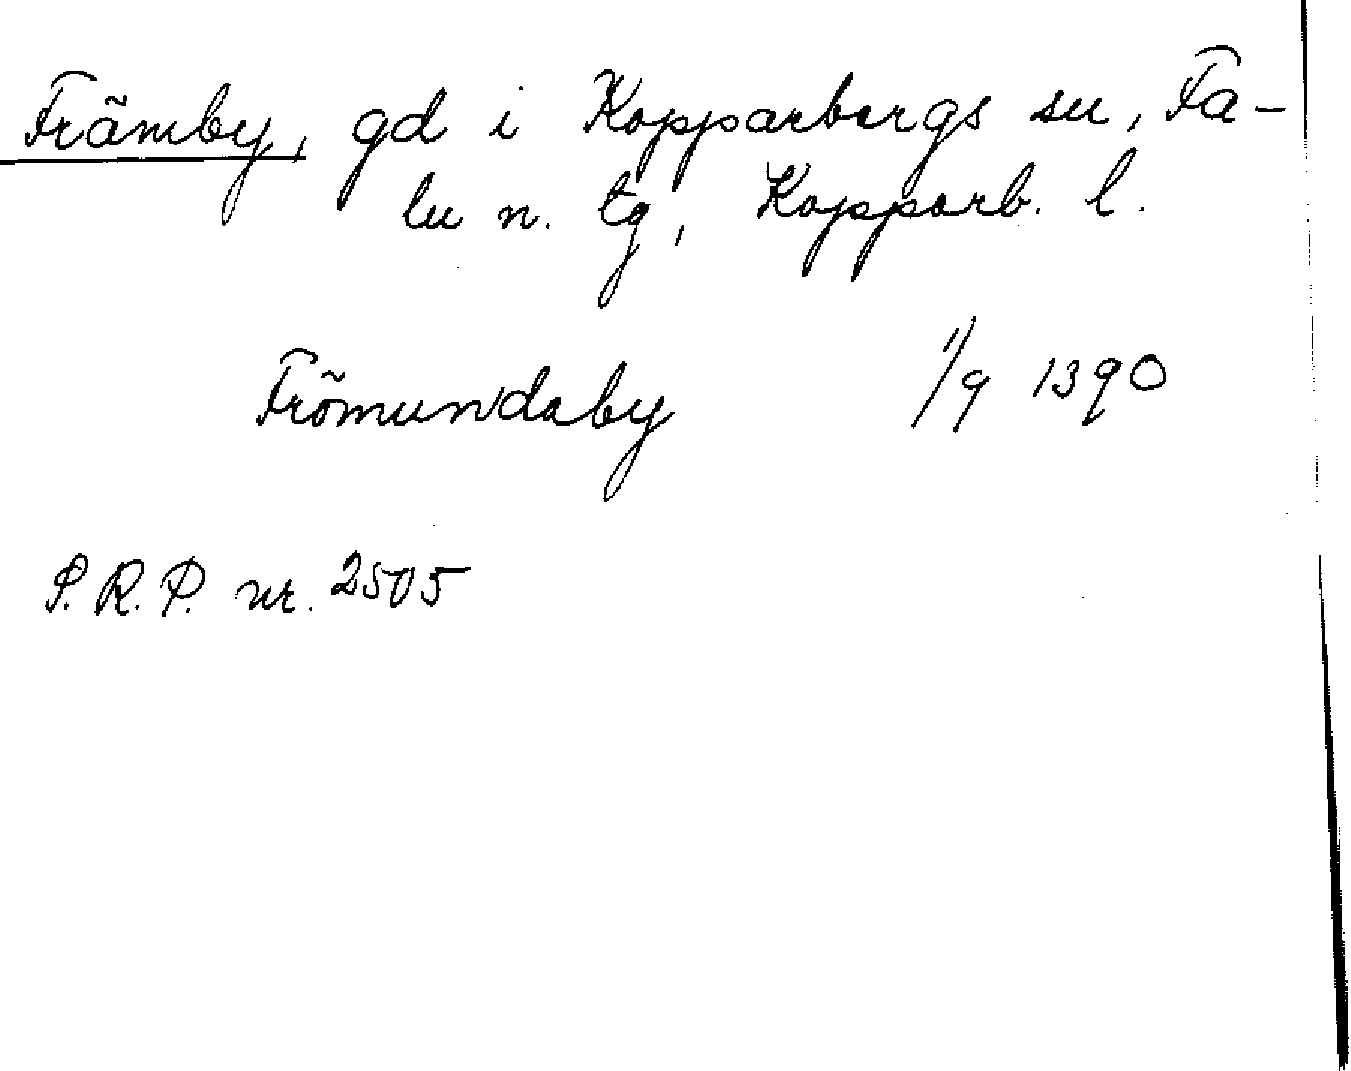 Främby, gd i Kopparbergs sn, Fa-
lu n. tg, Kopparb. l.
Frömundaby 1/9 1390
S.R.P. nr. 2505